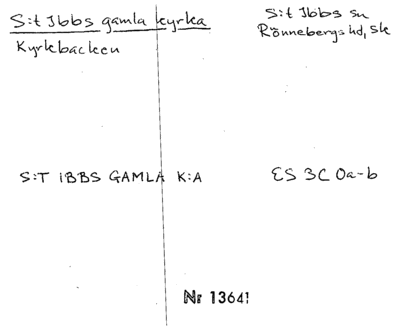 S:t Ibbs gamla kyrka
Kyrkbacken
S:t Ibbs sn
Rönnebergs hd, Sk
S:T IBBS GAMLA K:A
ES 3C 0a-b
Nr 13641